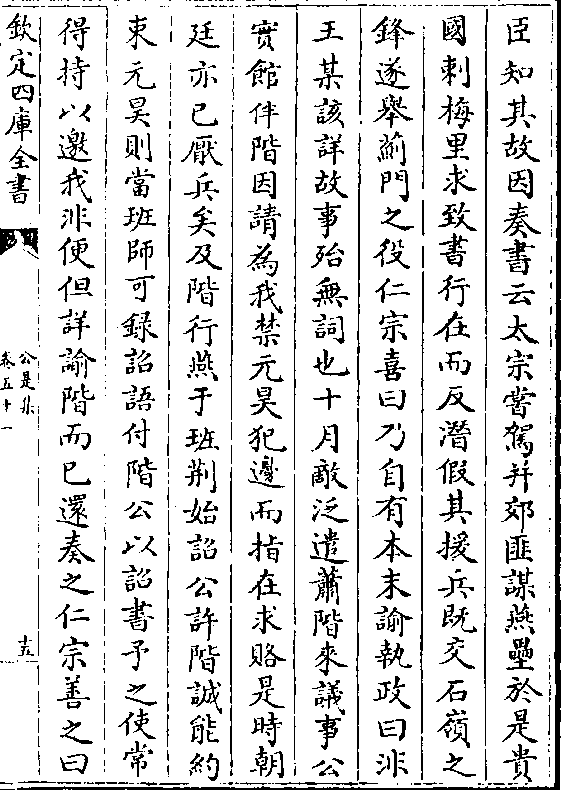 臣知其故因奏書云太宗嘗駕并郊匪謀燕壘於是貴
國刺梅里求致書行在而反潛假其援兵既交石嶺之
鋒遂舉薊門之役仁宗喜曰乃自有本末諭執政曰非
王某該詳故事殆無詞也十月敵泛遣蕭階來議事公
實館伴階因請為我禁元昊犯邊而指在求賂是時朝
廷亦已厭兵矣及階行燕于班荆始詔公許階誠能約
束元昊則當班師可録詔語付階公以詔書予之使常
得持以邀我非便但詳諭階而已還奏之仁宗善之曰
欽定四庫全書
公是集
卷五十一
十五